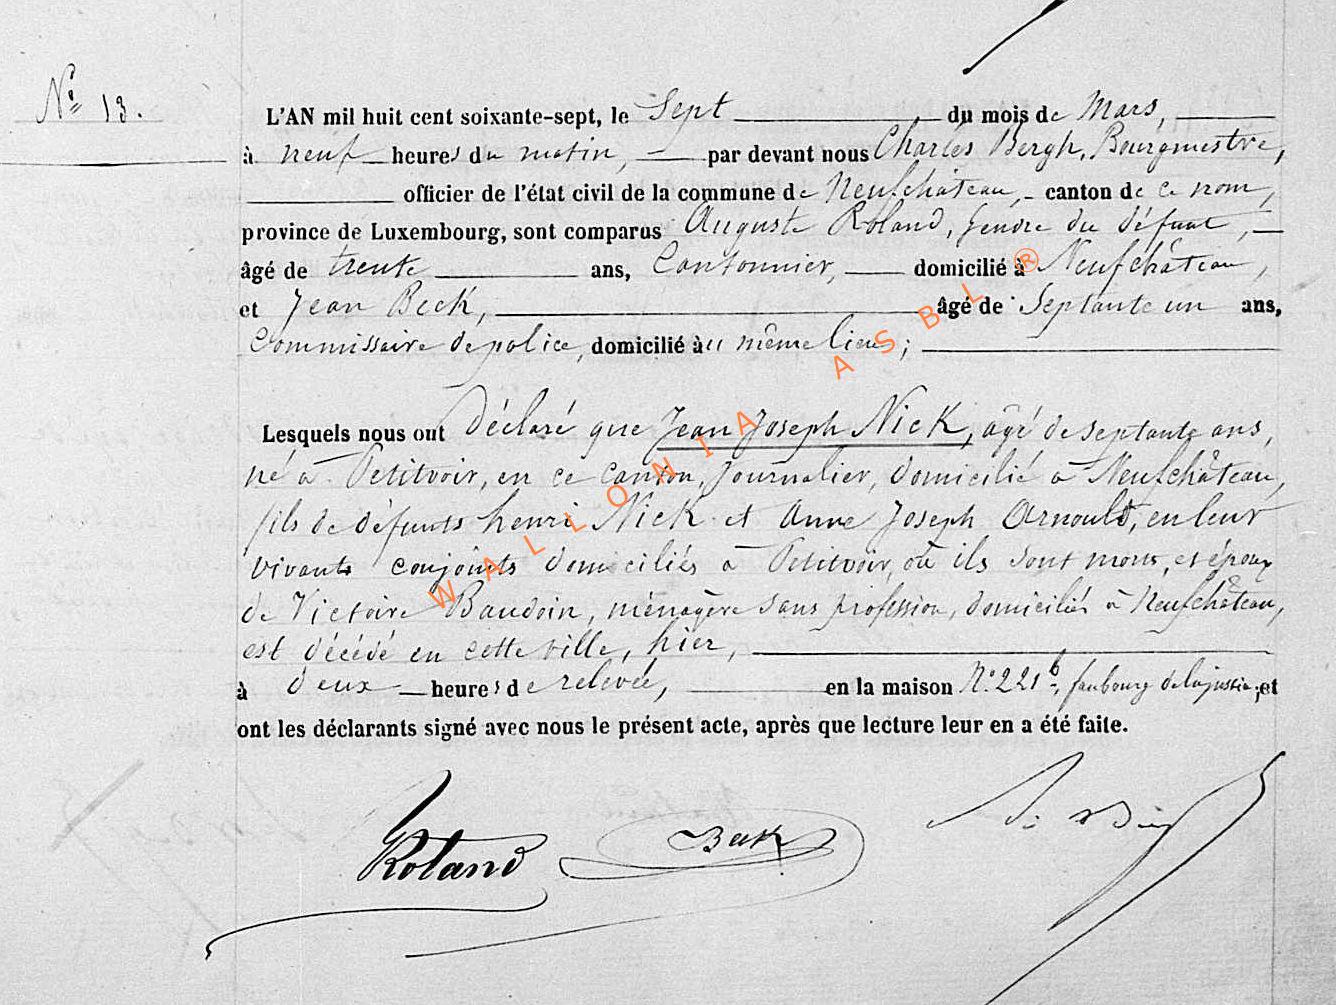 N.º 13.
L'AN mil huit cent soixante-sept, le Sept du mois de Mars,
à neuf heures du matin, par devant nous Charles Bergh, Bourgmestre,
officier de l'état civil de la commune de Neufchâteau, canton de ce nom,
province de Luxembourg, sont comparus Auguste Roland, Gendre du défunt,
âgé de trente ans, Cantonnier, domicilié à Neufchâteau,
et Jean Beck, âgé de Septante un ans,
Commissaire de police, domicilié au même lieu;
Lesquels nous ont Déclaré que Jean Joseph Nick, âgé de septante ans,
né à Petitvoir, en ce canton, Journalier, domicilié à Neufchâteau,
fils de défunts henri Nick et Anne Joseph Arnould, en leur
vivants conjoints domiciliés à Petitvoir, où ils sont morts, et époux
de Victoire Baudoin, ménagère sans profession, domiciliés à Neufchâteau,
est décédé en cette ville, hier,
à deux heures de relevée, en la maison N.º 221 b, faubourg de la justice; et
ont les déclarants signé avec nous le présent acte, après que lecture leur en a été faite.
Roland Beck
WALLONIA ASBL ®